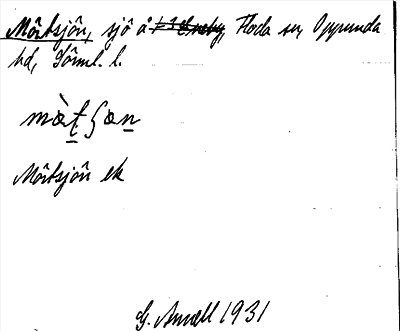 Mörtsjön, sjö å Floda sn, Oppunda
hd, Sörml. l.
mœ̀t̠ʃœn̠
Mörtsjön ek
G. Amell 1931